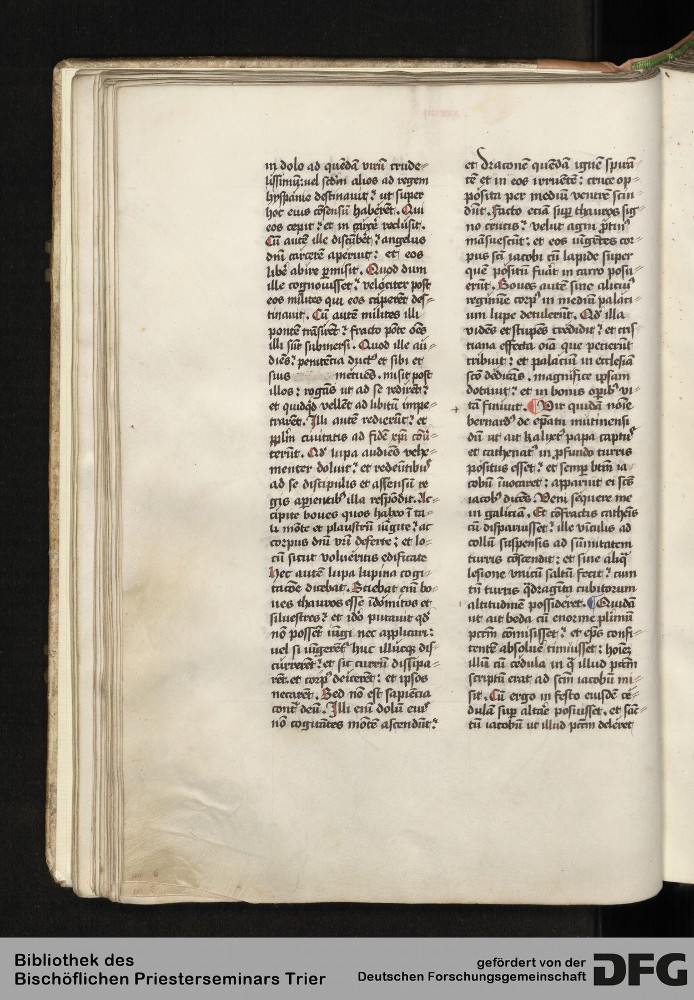 in dolo ad quēdā virū crude⸗
lissimū: uel scdm̄ alios ad regem
hyspanie destinauit: ut super
hoc eius cōsensū haberēt. Qui
eos cepit: et in carcē reclusit.
Cū autē ille discūbēt: angelus
dn̄i carcerē aperuit: et eos
libē abire ꝑmisit. Quod dum
ille cognouisset: velociter post
eos milites qui eos caperēt des⸗
tinauit. Cū autē milites illi
pontē trāsirēt: fracto pōte oēs
illi sūt submersi. Quod ille au⸗
diēs: penitēcia ductꝰ et sibi et
suis metuēs. misit post
illos: rogās ut ad se redirēt:
et quidqd vellēt ad libitū impe⸗
trarēt. Illi autē redierūt: et
ppl̄m ciuitatis ad fidē xp̄i cōu⸗
terūt. Qd̄ lupa audiēs vehe⸗
menter doluit: et redeūtibꝰ
ad se discipulis et assensū re
gis aꝑientibꝰ illa respōdit. Ac⸗
cipite boues quos habeo ī ta⸗
li mōte et plaustrū iūgite: ac
corpus dn̄i vr̄i deferte: et lo⸗
cū sicut volueritis edificate
Hec autē lupa lupina cogi⸗
tacōe dicebat. Sciebat em̄ bo⸗
ues thauros esse īdomitos et
siluestres: et ido putauit qd̄
nō possēt iūgi nec applicari:
uel si iūgerēt huc illucqꝫ dis⸗
currerēt: et sic currū dissipa⸗
rēt. et corpꝰ deicerēt: et ipsos
necarēt. Sed nō est sapiēcia
cont̄ deū. Illi em̄ dolū eiꝰ
nō cogitātes mōtē ascendūt:
et draconē quēdā ignē spirā⸗
tē et in eos irruētē: cruce op⸗
posita per mediū ventrē scin⸗
dūt. Facto eciā suꝑ thauros sig⸗
no crucis: velut agni ꝓtinꝰ
māsuescūt: et eos iūgētes cor⸗
pus sc̄i iacobi cū lapide super
quē positū fuāt in curro posu⸗
erūt. Boues autē sine alicuiꝰ
regimīe corpꝰ in mediū palaci⸗
um lupe detulerūt. Qd̄ illa
vidēs et stupēs credidit: et cris⸗
tiana effecta oīa que petierūt
tribuit: et palaciū in ecclesiā
sc̄o dedicās. magnifice ipsam
dotauit: et in bonis opibꝰ vi⸗
tā finiuit. Vir quidā noīe
bernardꝰ de ep̄atu mutinensi
dū ut ait kalyctꝰ papa captꝰ
et cathenatꝰ in ꝓfundo turris
positus esset: et semꝑ btm̄ ia⸗
cobū īuocaret: apparuit ei sc̄s
iacobꝰ dicēs. Veni sequere me
in galiciā. Et cōfractis cathēis
cū disparuisset: ille vīculis ad
collū suspensis ad sūmitatem
turris cōscendit: et sine aliq̄
lesione vnicū saltū fecit: cum
tn̄ turris q̄dragīta cubitorum
altitudinē possideret. Quidā
ut ait beda cū enorme plimū
pctm̄ cōmisisset: et ep̄s confi⸗
tentē absolūe timuisset: hoīeꝫ
illū cū cedula in q̄ illud pctm̄
scriptū erat ad scm̄ iacobū mi⸗
sit. Cū ergo in festo eiusdē ce⸗
dulā suꝑ altāe posuisset. et sāc⸗
tū iacobū ut illud pctm̄ deleret
Bibliothek des
Bischöflichen Priesterseminars Trier
gefördert von der
Deutschen Forschungsgemeinschaft
DFG